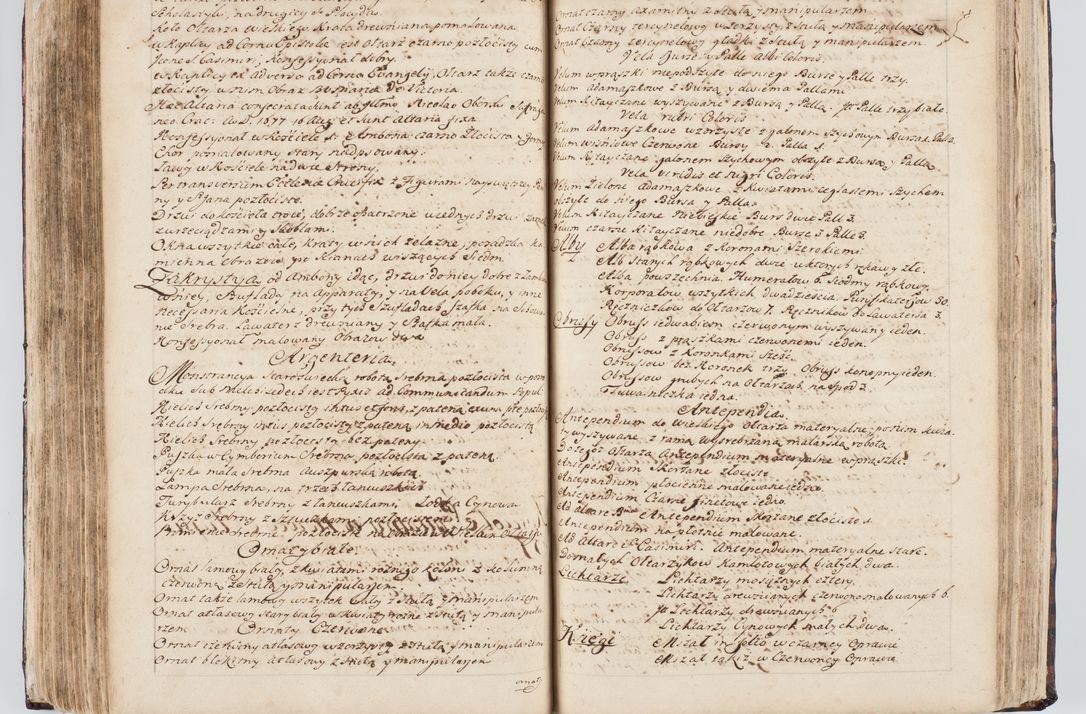 Scholastyki, na drugiey S. Placyda.
Koło Ołtarza Wielkiego Krata drewniana pomalowana.
w Kaplicy ad Cornu Epistolæ iest Ołtarz czarno pozłocisty cum
Icone S. Casimiri, Konfessyonał dobry.
w Kaplicy ex adverso ad Cornu Evangelij, Ołtarz także czarno
złocisty w nim Obraz B. Mariæ de Victoria.
Hæc Altaria consecrata sunt ab Illmo Nicolao Oborski Suffraga
neo Crac: A. D. 1677 16 Aug: et sunt Altaria fixa
Konfessyonał w Kościele 1. Ambona czarno Złocista
Chor pomalowany stary nadpsowany.
Ławy w Kościele na dwie strony.
Per transversum Ecclesiæ Crucifix z Figurami Nayswiętszey Pan
ny y S. Jana pozłociste.
Drzwi do Kościoła troie, dobrze opatrzone w iednych drzwi
zwrzeciądzami y Skoblami.
Okna wszystkie całe, Kraty w nich żelazne, posadzka ka
mienna Obrazow po scianach wiszących Siedm
Zakrystya od Ambony idąc, drzwi do niey dobre z Zamkiem
w niey, Szuflady na Apparaty, y na Vela poboku, y inne
necessaria Kościelne, przy tych Szufladach Szafka na schowa
nie Srebra. Lawaterz drewniany y Szafka mała.
Konfessyonał malowany Obrazow dwa
Argenteria
Monstrancya Staroswiecka robota Srebrna pozłocista
Kielich Srebrny pozłocisty intus et foris, z pateną
Kielich Srebrny intus pozłocisty z pateną in medio pozłocistą
Kielich Srebrny pozłocisty bez pateny
Puszka w Cymborium Srebrna pozłocista z pateną
Puszka mała Srebrna Auszpurska robota
Lampa Srebrna, na trzech łancuszkach
Turybularz Srebrny z łancuszkami, Łodka Cynowa
Ornaty białe
Ornat lamowy biały, z kwiatami rożnego koloru z kolumną
czerwoną z stułą y manipularzem
Ornat także lamowy wszytek biały z stułą y manipularzem
Ornat atłasowy stary biały w kwiaty rożne z stułą y manipula
rzem
Ornaty Czerwone
Ornat czerwony atłasowy wzorzysty z stułą y manipularzem
Ornat blekitny atłasowy z stułą y manipularzem
ornat
Ornat czarny axamitny z stułą y manipularzem
Ornat Czarny tercynelowy wzorzysty z stułą y manipularzem
Ornat Czarny tercynelowy gładki z stułą y manipularzem.
Vela Bursæ y Pallæ albi Coloris.
Velum w prążki niepodszyte do niego Bursa y Palle trzy.
Velum adamaszkowe z Bursą y dwiema Pallami
Velum Kitayczane wyszywane z Bursą y Pallą. It. Palle trzy białe
Vela rubri Coloris
Velum adamaszkowe wzorzyste z galonem szychowym Bursa 1. Palla
Velum wisniowe Czerwone Bursy 2. Palla 1.
Velum Kitayczane galonem szychowym obszyte z Bursą y Pallą
Vela viridis et nigri Coloris.
Velum Zielone adamaszkowe z kwiatami ceglastemi szychem
obszyte do niego Bursa y Palla
Velum Kitayczane Niebieskie Burs dwie Palle 3.
Velum czarne Kitayczane niedobre Bursę 3 Palle 3.
Alby Alba rąbkowa z Koronami Szerokiemi
Alb starych rąbkowych dwie u ktorych rękawy złe.
Alba powszechnia. Humerałow 6. Siodmy rąbkowy.
Korporałow wszytkich dwadzieścia. Purifikaterzow 30.
Ręczniczkow do Ołtarzow 7. Ręcznikow do Lawaterza 3.
Obrusy Obrus iedwabiem czerwonym wyszywany ieden.
Obrus z ptaszkami czerwonemi ieden.
Obrusow z Koronkami Sześć.
Obrusow bez Koronek trzy. Obrus konopny ieden.
Obrusow grubych na Ołtarzach na spod 2.
Tuwalniczka iedna.
Antependia.
Antependium do Wielkiego Ołtarza materyalne,
ty wyszywane z ramą wysrebrzaną malarską robotą
Do tegoż Ołtarza Antependium materyalne w prążki.
Antependium Skorzane złociste
Antependium płocienne malowane iedno.
Antependium Czarne iedno
Ad Altare B. Antependium Skorzane złociste 1.
Antependium na płotnie malowane.
Ad Altare S. Casimiri. Antependium materyalne stare.
Do małych Ołtarzykow Kamlotowych białych dwa.
Lichtarze Lichtarzy mosiążnych cztery
Lichtarzy drewnianych czerwono malowanych 6.
It. Lichtarzy drewnianych 6
Lichtarzy Cynowych małych dwa.
Kxięgi Mszał in folio w czarney Oprawie
Mszał takiż w Czerwoney Oprawie